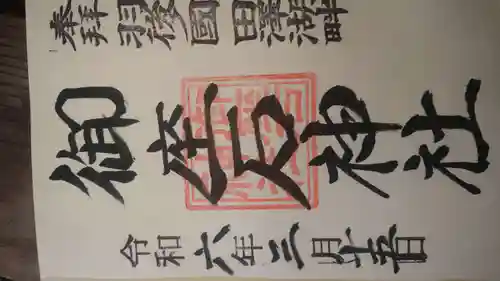 奉拝 羽後國田澤湖畔
御座石神社
令和六年三月十五日